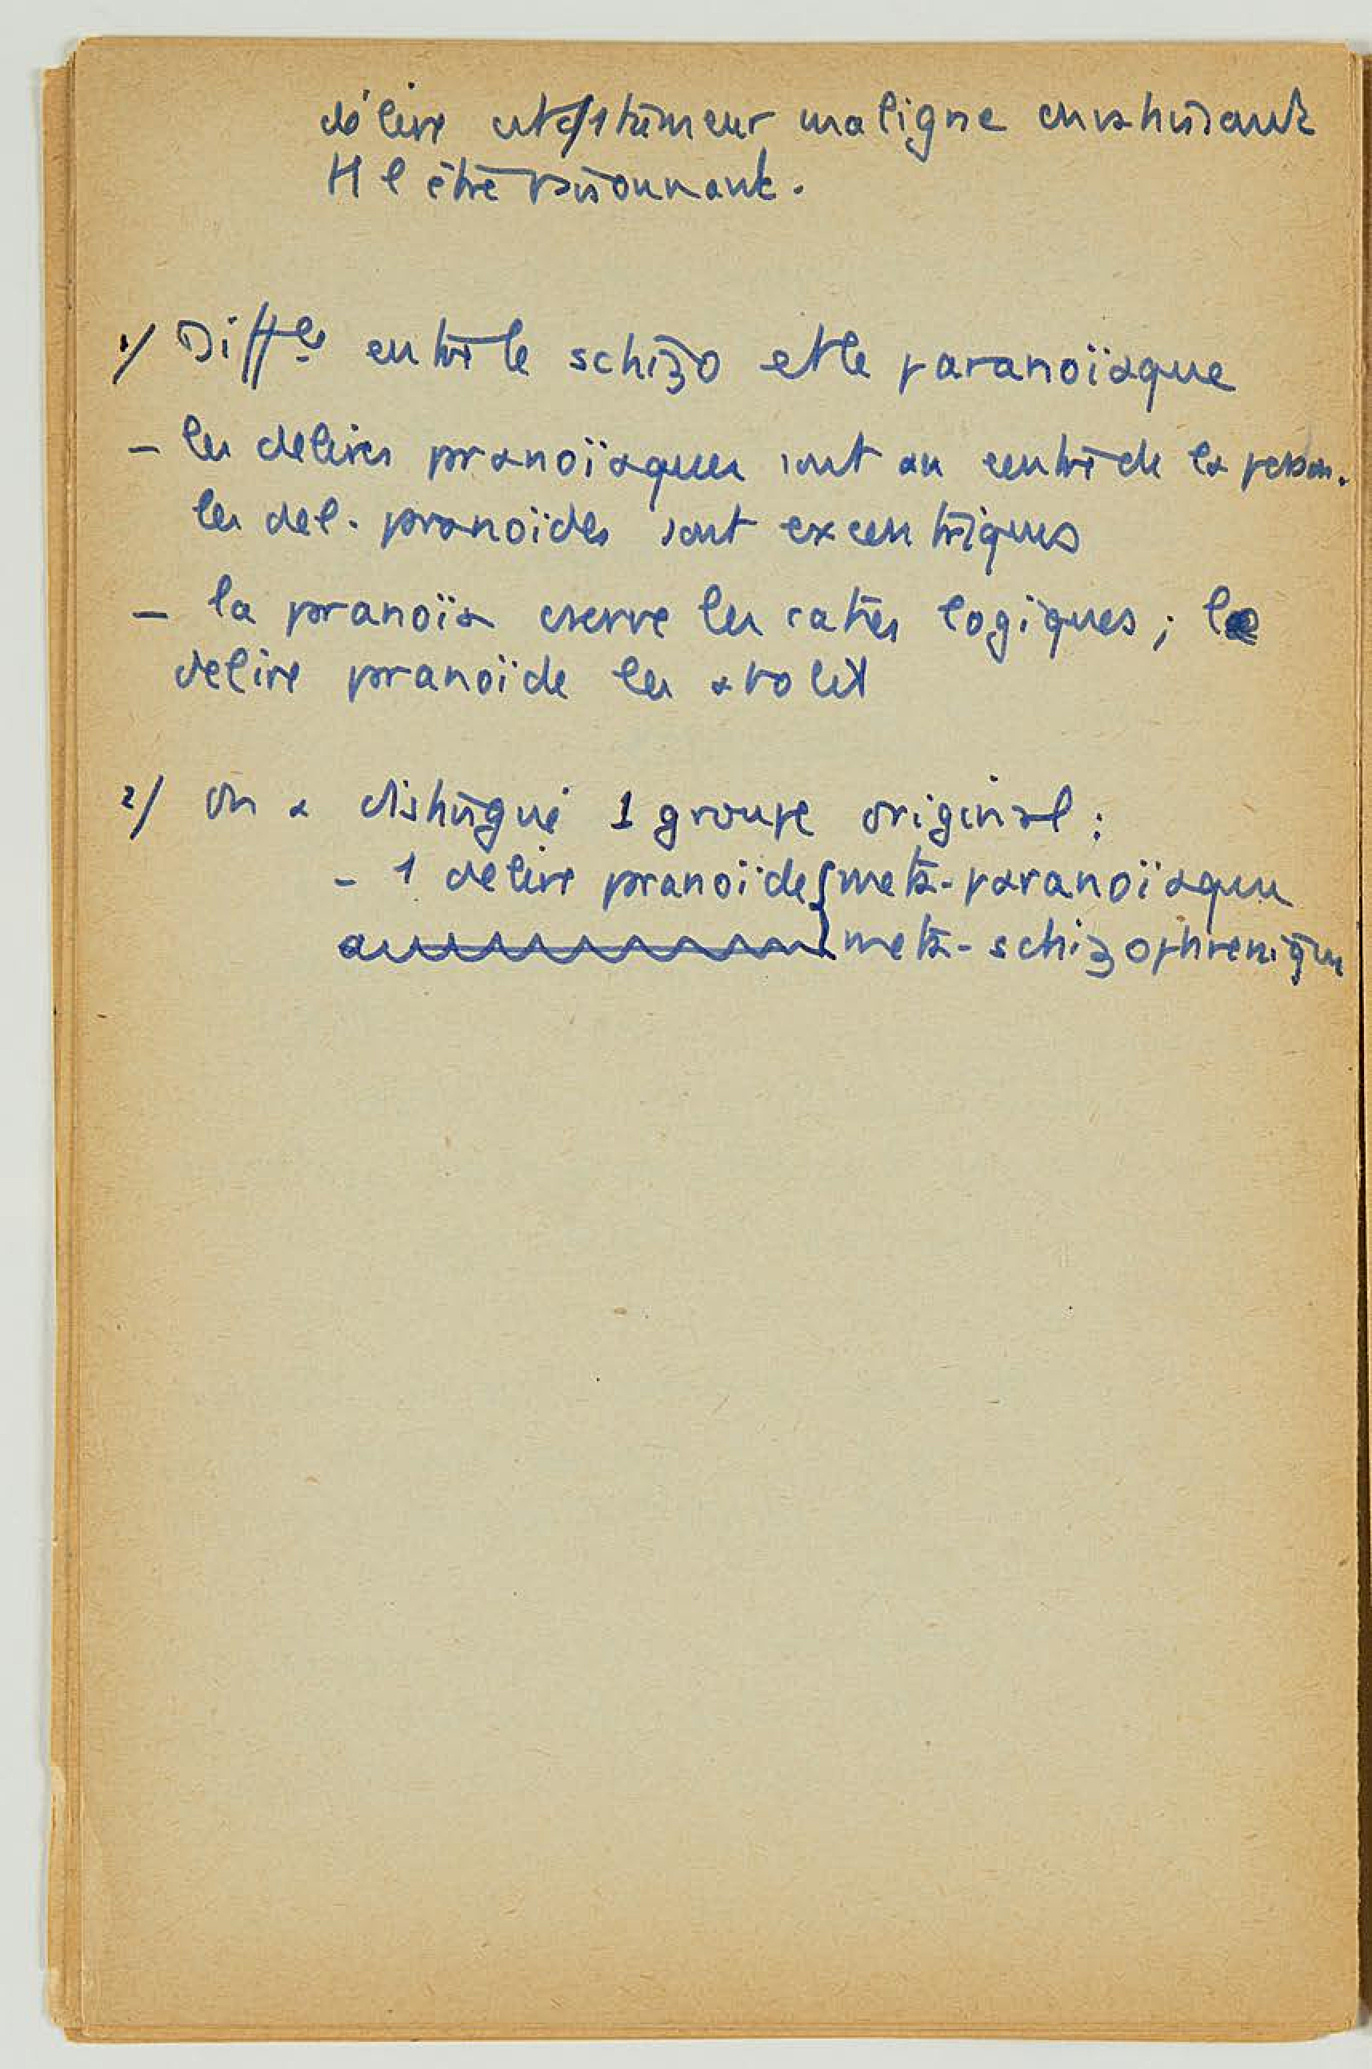 délire est 1 tumeur maligne
tt l'être raisonnant.
1/ Diffces entre le schizo et le paranoïaque
– les délires pranoïaques sont au centre de la person.
les del. pranoïdes sont excentriques
– la pranoïa cserve les caties logiques ; le
delire pranoïde les abolit
2/ On a distingué 1 groupe original :
– 1 delire pranoïde { meta-paranoïaque
meta-schizophrenique